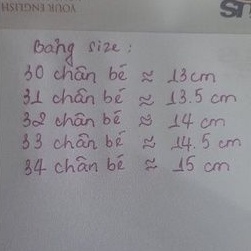 YOUR ENGLISH
Bảng size :
30 chân bé ≈ 13 cm
31 chân bé ≈ 13.5 cm
32 chân bé ≈ 14 cm
33 chân bé ≈ 14.5 cm
34 chân bé ≈ 15 cm